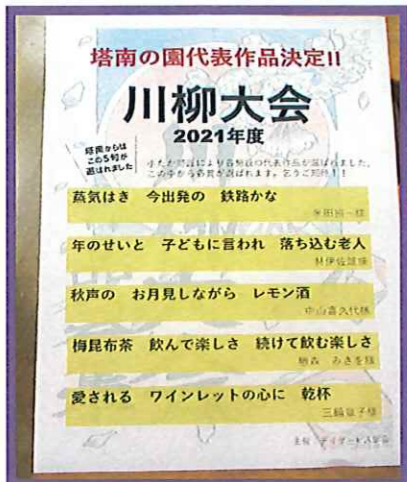 塔南の園代表作品決定!!
川柳大会
2021年度
塔南からは
この5句が
選ばれました
により各施設の代表作品が選ばれました。
この中から各賞が選ばれます。乞うご期待!!
蒸気はき 今出発の 鉄路かな
年のせいと 子どもに言われ 落ち込む老人
林伊佐雄様
秋声の お月見しながら レモン酒
中山喜久代様
梅昆布茶 飲んで楽しさ 続けて飲む楽しさ
みきを様
愛される ワインレットの心に 乾杯
三輪 子様
主催:デイサービス部会